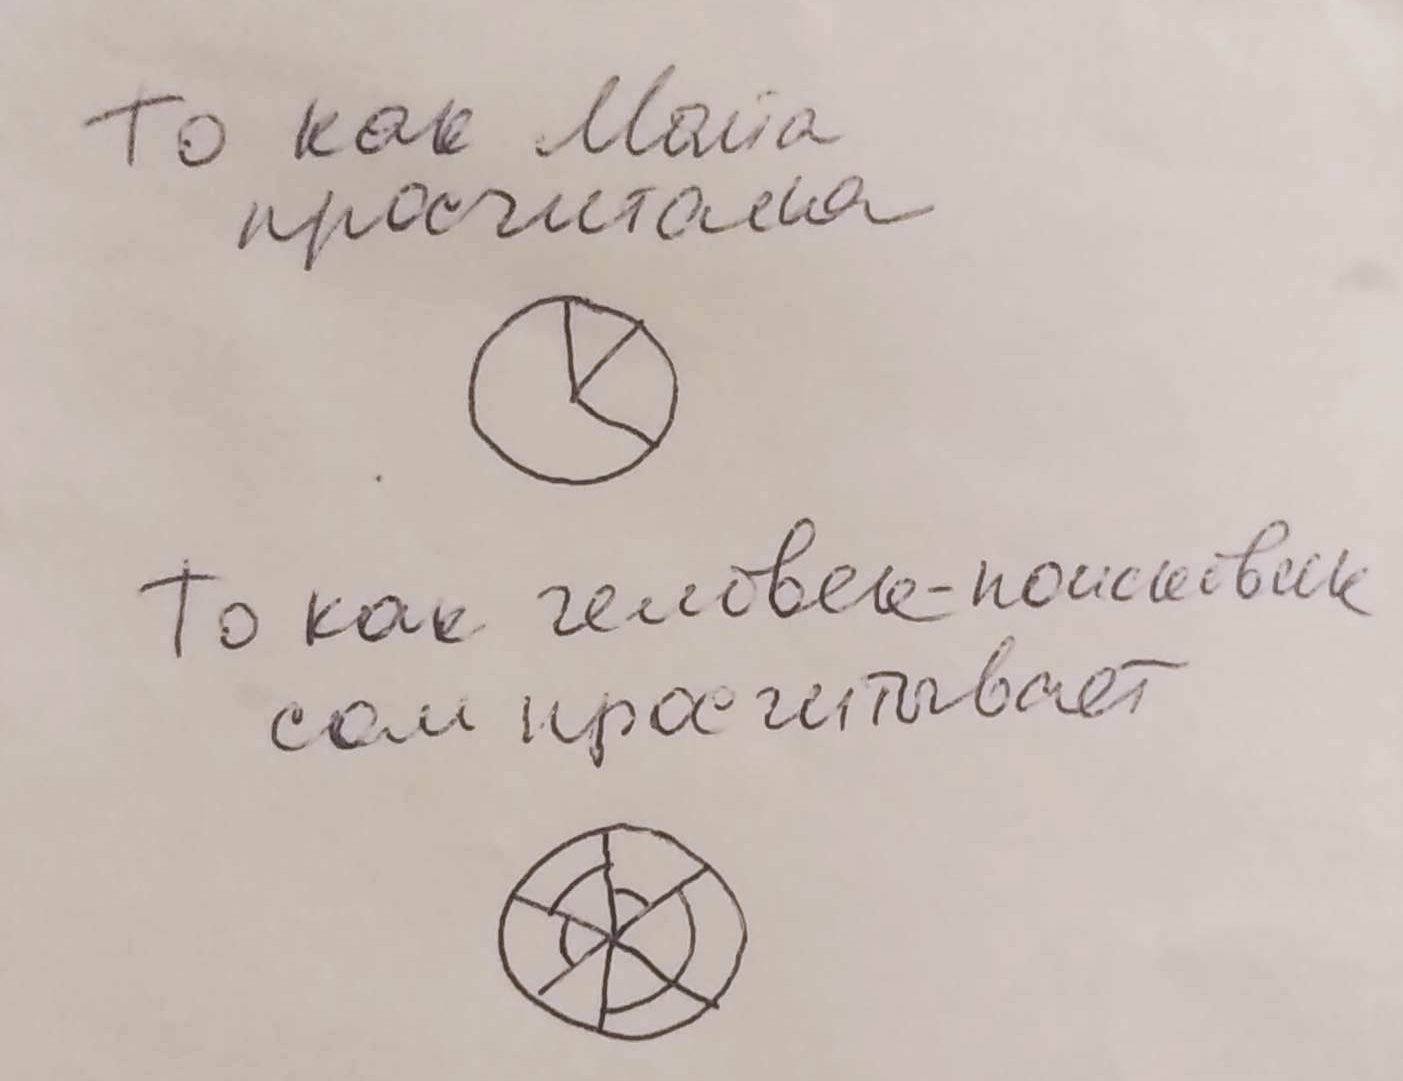 То как Майа
просчитала
То как человек-поисковик
сам просчитывает